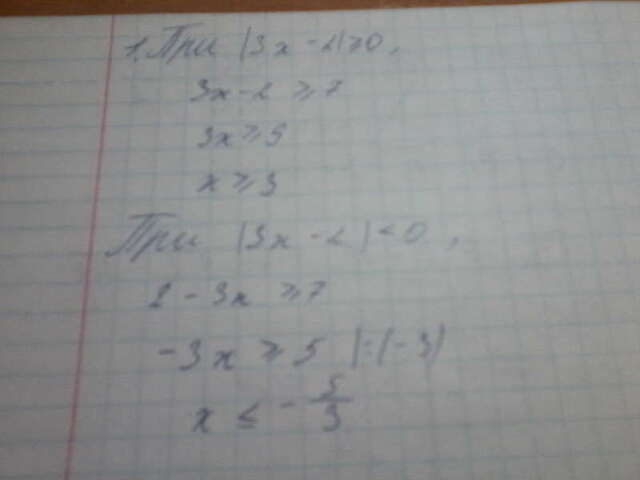 1. При |3x - 2| ≥ 0,
3x - 2 ≥ 7
3x ≥ 9
x ≥ 3
При |3x - 2| < 0,
2 - 3x ≥ 7
-3x ≥ 5 |:(-3)
x ≤ - 5/3